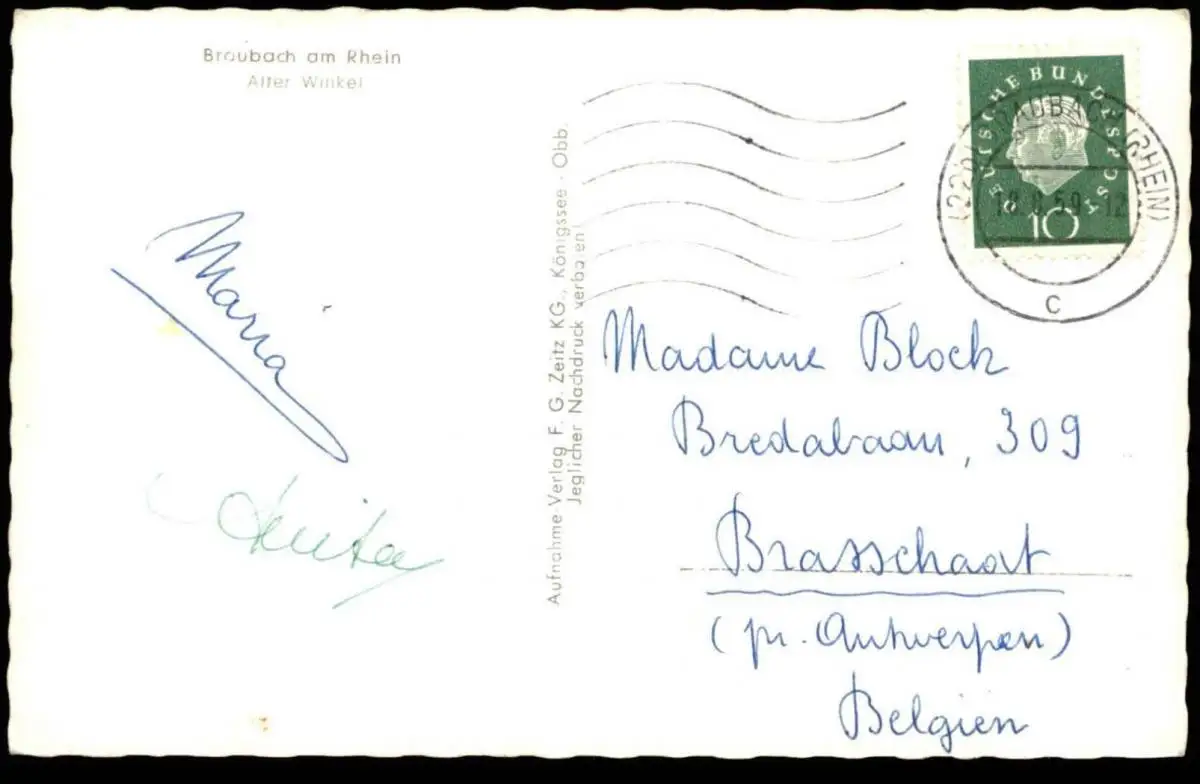 Braubach am Rhein
Alter Winkel
Maria
Anita
Aufnahme-Verlag F. G. Zeitz KG., Königssee - Obb.
Jeglicher Nachdruck verboten!
DEUTSCHE BUNDESPOST
10
BRAUBACH (RHEIN)
59 - 12
c
Madame Block
Bredabaan, 309
Brasschaat
(pr. Antwerpen)
Belgien